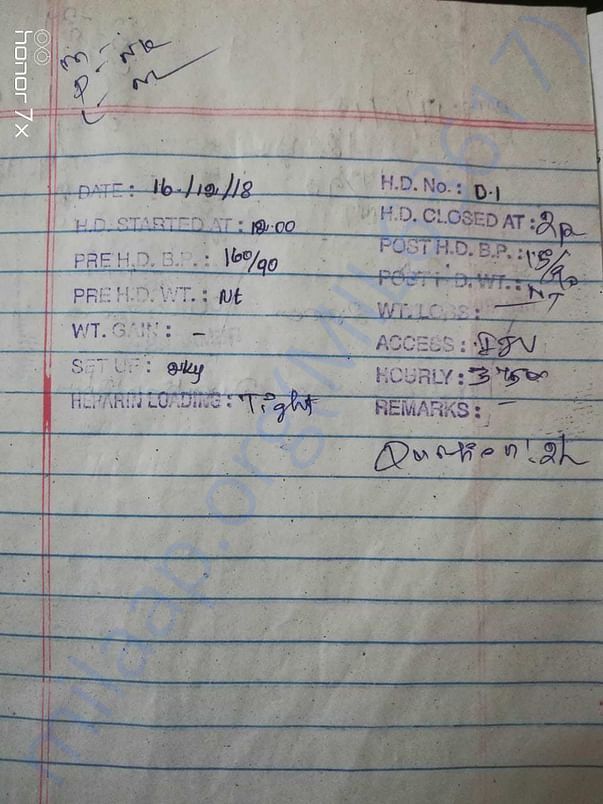 honor 7x
DATE: 16/12/18
H.D. STARTED AT: 12.00
PRE H.D. B.P.: 160/90
PRE H.D. WT.: Nt
WT. GAIN: -
SET UP:
HEPARIN LOADING: Tight
H.D. No.: D.1
H.D. CLOSED AT: 2p
POST H.D. B.P.:
POST H.D. WT.: NT
WT. LOSS:
ACCESS: IJV
HOURLY:
REMARKS: -
Duration: 2h
milaap.org